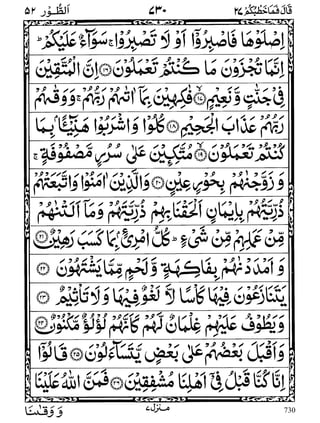 قال فما خطبكم ٢٧ ٧٣٠ الطور ٥٢
اِصْلَوْهَا فَاصْبِرُوْۤا اَوْ لَا تَصْبِرُوْا ۚ سَوَآءٌ عَلَيْكُمْ ؕ
اِنَّمَا تُجْزَوْنَ مَا كُنْتُمْ تَعْمَلُوْنَ ﴿۱۶﴾ اِنَّ الْمُتَّقِيْنَ
فِيْ جَنّٰتٍ وَّ نَعِيْمٍ ﴿۱۷﴾ فٰكِهِيْنَ بِمَاۤ اٰتٰىهُمْ رَبُّهُمْ ۚ وَوَقٰىهُمْ
رَبُّهُمْ عَذَابَ الْجَحِيْمِ ﴿۱۸﴾ كُلُوْا وَاشْرَبُوْا هَنِيْٓـًٔۢا بِمَا
كُنْتُمْ تَعْمَلُوْنَ ﴿۱۹﴾ مُتَّكِـِٕيْنَ عَلٰى سُرُرٍ مَّصْفُوْفَةٍ ۚ
وَ زَوَّجْنٰهُمْ بِحُوْرٍ عِيْنٍ ﴿۲۰﴾ وَالَّذِيْنَ اٰمَنُوْا وَاتَّبَعَتْهُمْ
ذُرِّيَّتُهُمْ بِاِيْمَانٍ اَلْحَقْنَا بِهِمْ ذُرِّيَّتَهُمْ وَمَاۤ اَلَتْنٰهُمْ
مِّنْ عَمَلِهِمْ مِّنْ شَيْءٍ ؕ كُلُّ امْرِئٍۭ بِمَا كَسَبَ رَهِيْنٌ ﴿۲۱﴾
وَ اَمْدَدْنٰهُمْ بِفَاكِهَةٍ وَّ لَحْمٍ مِّمَّا يَشْتَهُوْنَ ﴿۲۲﴾
يَتَنَازَعُوْنَ فِيْهَا كَاْسًا لَّا لَغْوٌ فِيْهَا وَلَا تَاْثِيْمٌ ﴿۲۳﴾
وَ يَطُوْفُ عَلَيْهِمْ غِلْمَانٌ لَّهُمْ كَاَنَّهُمْ لُؤْلُؤٌ مَّكْنُوْنٌ ﴿۲۴﴾
وَ اَقْبَلَ بَعْضُهُمْ عَلٰى بَعْضٍ يَّتَسَآءَلُوْنَ ﴿۲۵﴾ قَالُوْۤا
اِنَّا كُنَّا قَبْلُ فِيْۤ اَهْلِنَا مُشْفِقِيْنَ ﴿۲۶﴾ فَمَنَّ اللّٰهُ عَلَيْنَا
وَ وَقٰىنَا منزل ٧ 730